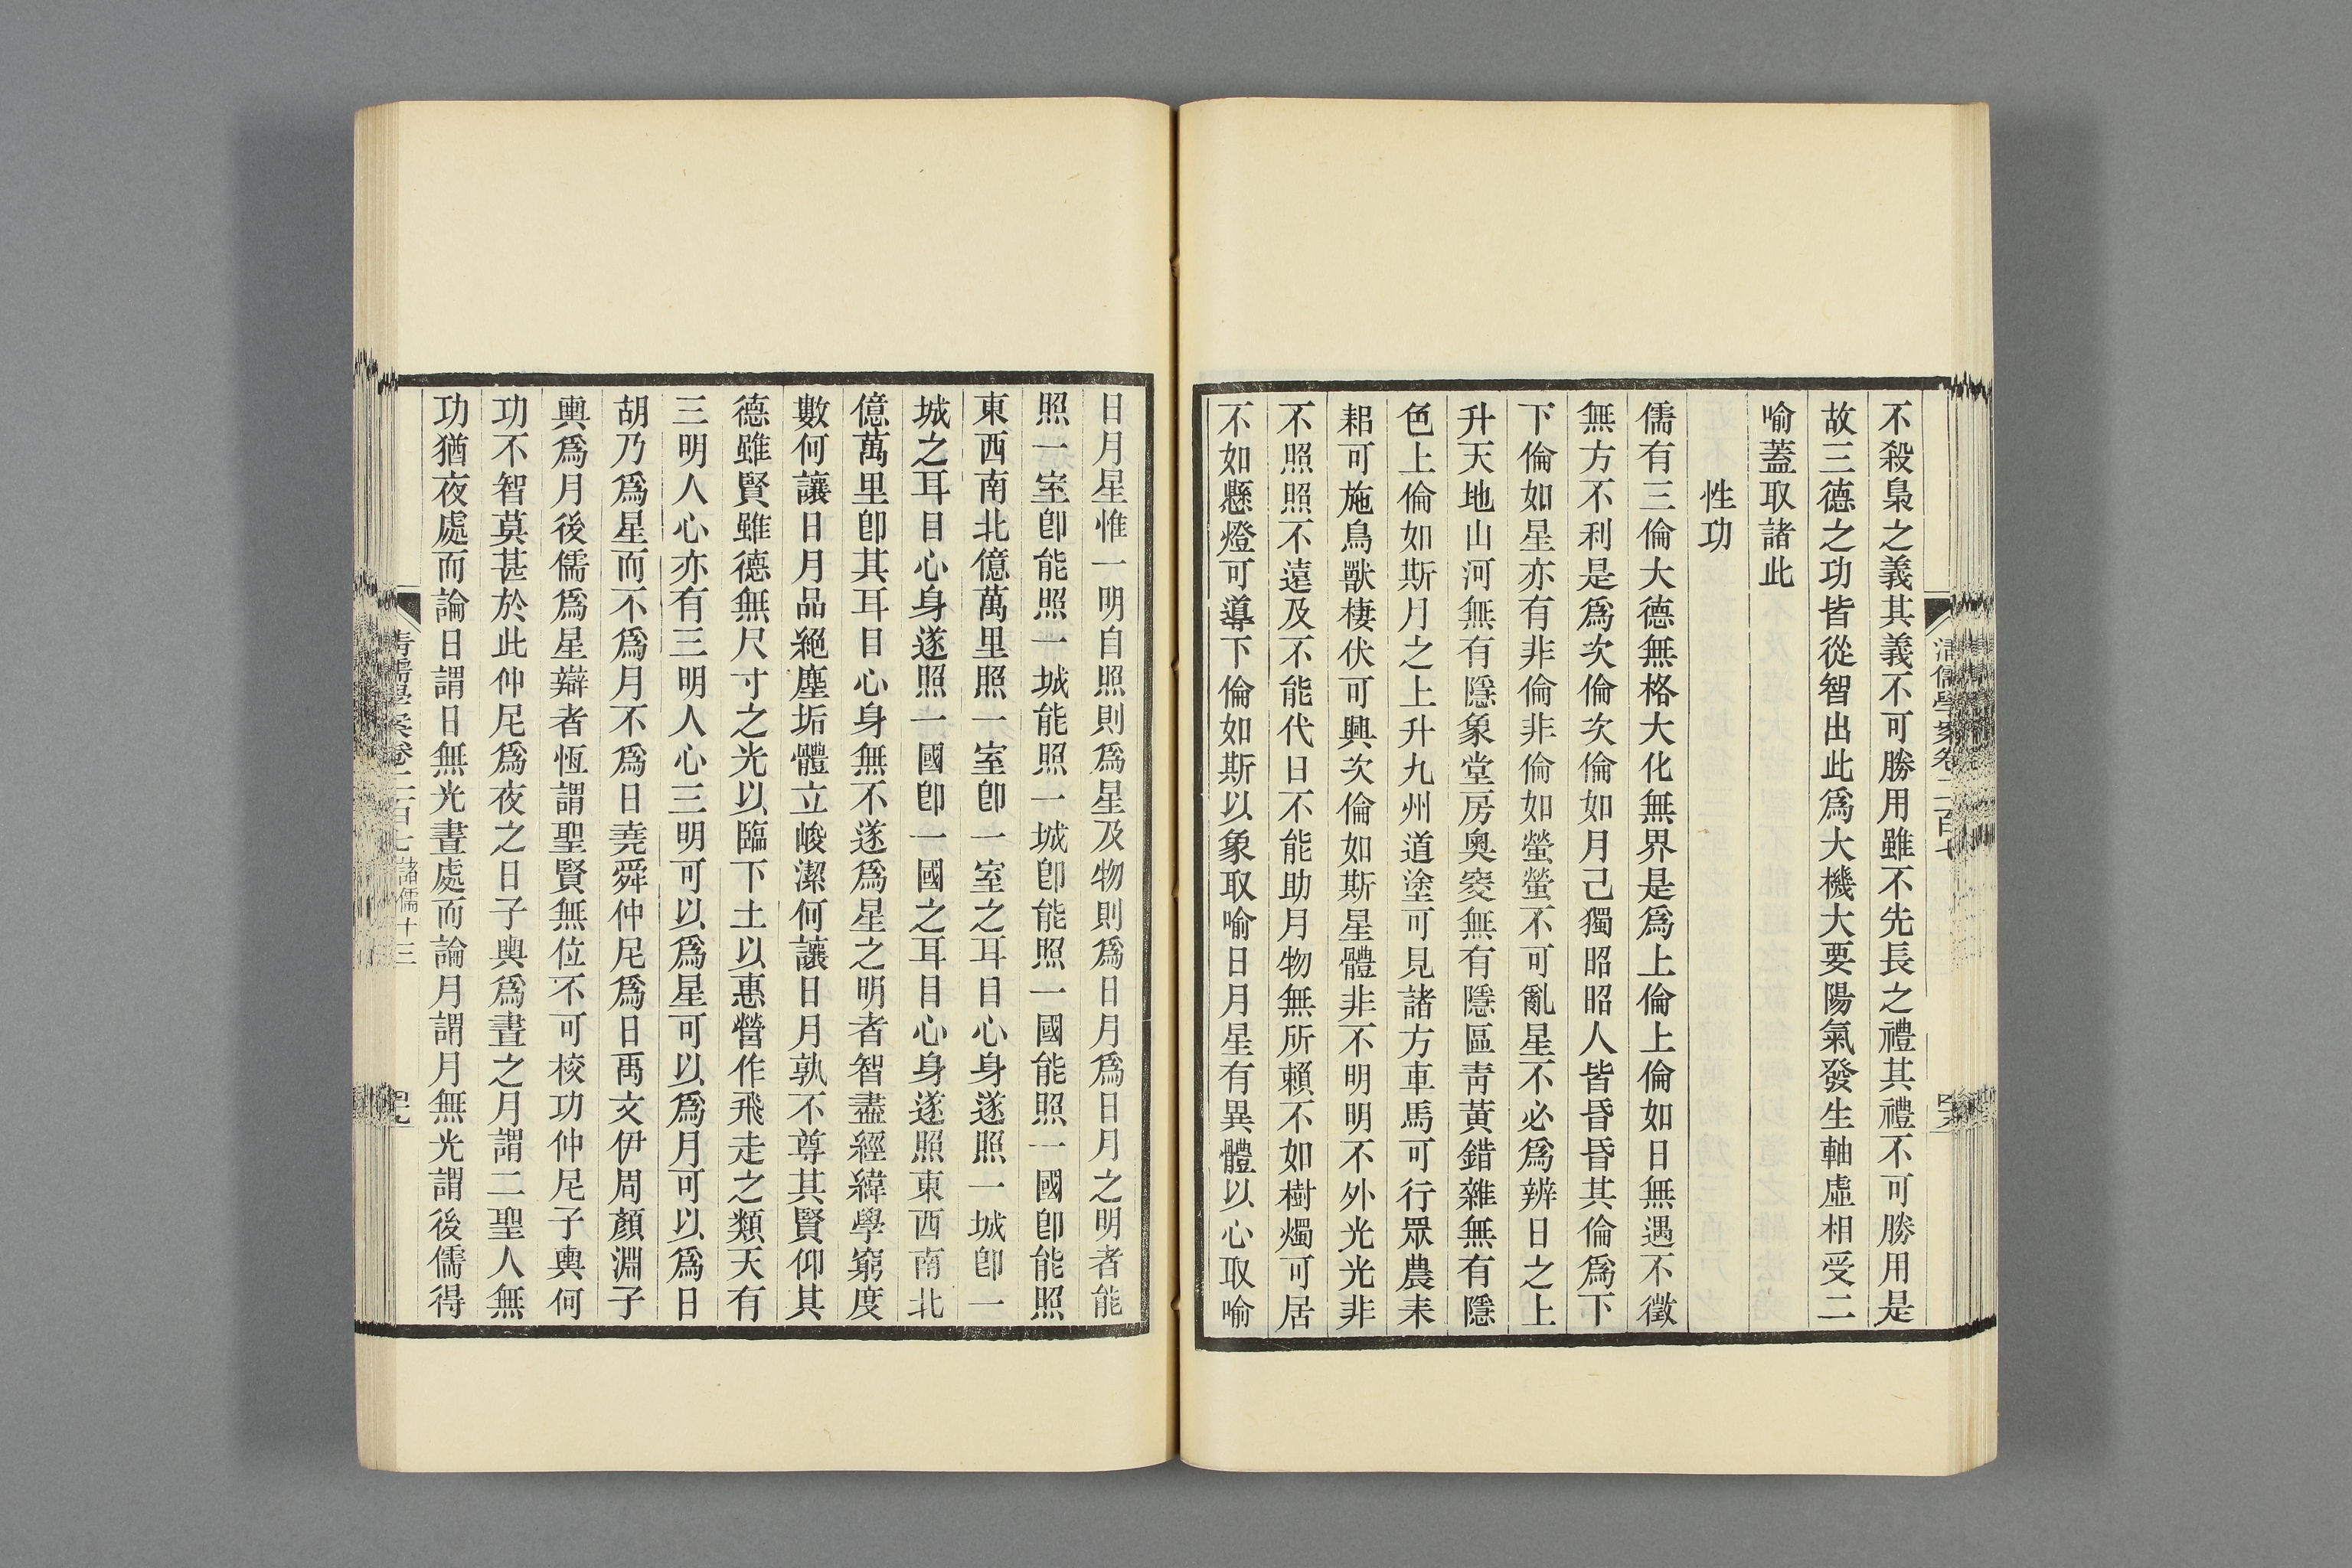 不殺梟之義其義不可勝用雖不先長之禮其禮不可勝用是
故三德之功皆從智出此爲大機大要陽氣發生軸虛相受二
喻蓋取諸此
性功
儒有三倫大德無格大化無界是爲上倫上倫如日無遇不徵
無方不利是爲次倫次倫如月己獨昭昭人皆昏昏其倫爲下
下倫如星亦有非倫非倫如螢螢不可亂星不必爲辨日之上
升天地山河無有隱象堂房奧窔無有隱區靑黃錯雜無有隱
色上倫如斯月之上升九州道塗可見諸方車馬可行眾農耒
耜可施鳥獸棲伏可興次倫如斯星體非不明明不外光光非
不照照不遠及不能代日不能助月物無所賴不如樹燭可居
不如懸燈可導下倫如斯以象取喻日月星有異體以心取喻
日月星惟一明自照則爲星及物則爲日月爲日月之明者能
照一室卽能照一城能照一城卽能照一國能照一國卽能照
東西南北億萬里照一室卽一室之耳目心身遂照一城卽一
城之耳目心身遂照一國卽一國之耳目心身遂照東西南北
億萬里卽其耳目心身無不遂爲星之明者智盡經緯學窮度
數何讓日月品絕塵垢體立峻潔何讓日月孰不尊其賢仰其
德雖賢雖德無尺寸之光以臨下土以惠營作飛走之類天有
三明人心亦有三明人心三明可以爲星可以爲月可以爲日
胡乃爲星而不爲月不爲日堯舜仲尼爲日禹文伊周顏淵子
輿爲月後儒爲星辯者恆謂聖賢無位不可校功仲尼子輿何
功不智莫甚於此仲尼爲夜之日子輿爲晝之月謂二聖人無
功猶夜處而論日謂日無光晝處而論月謂月無光謂後儒得
清儒學案卷二百七
清儒學案卷二百七 諸儒十三